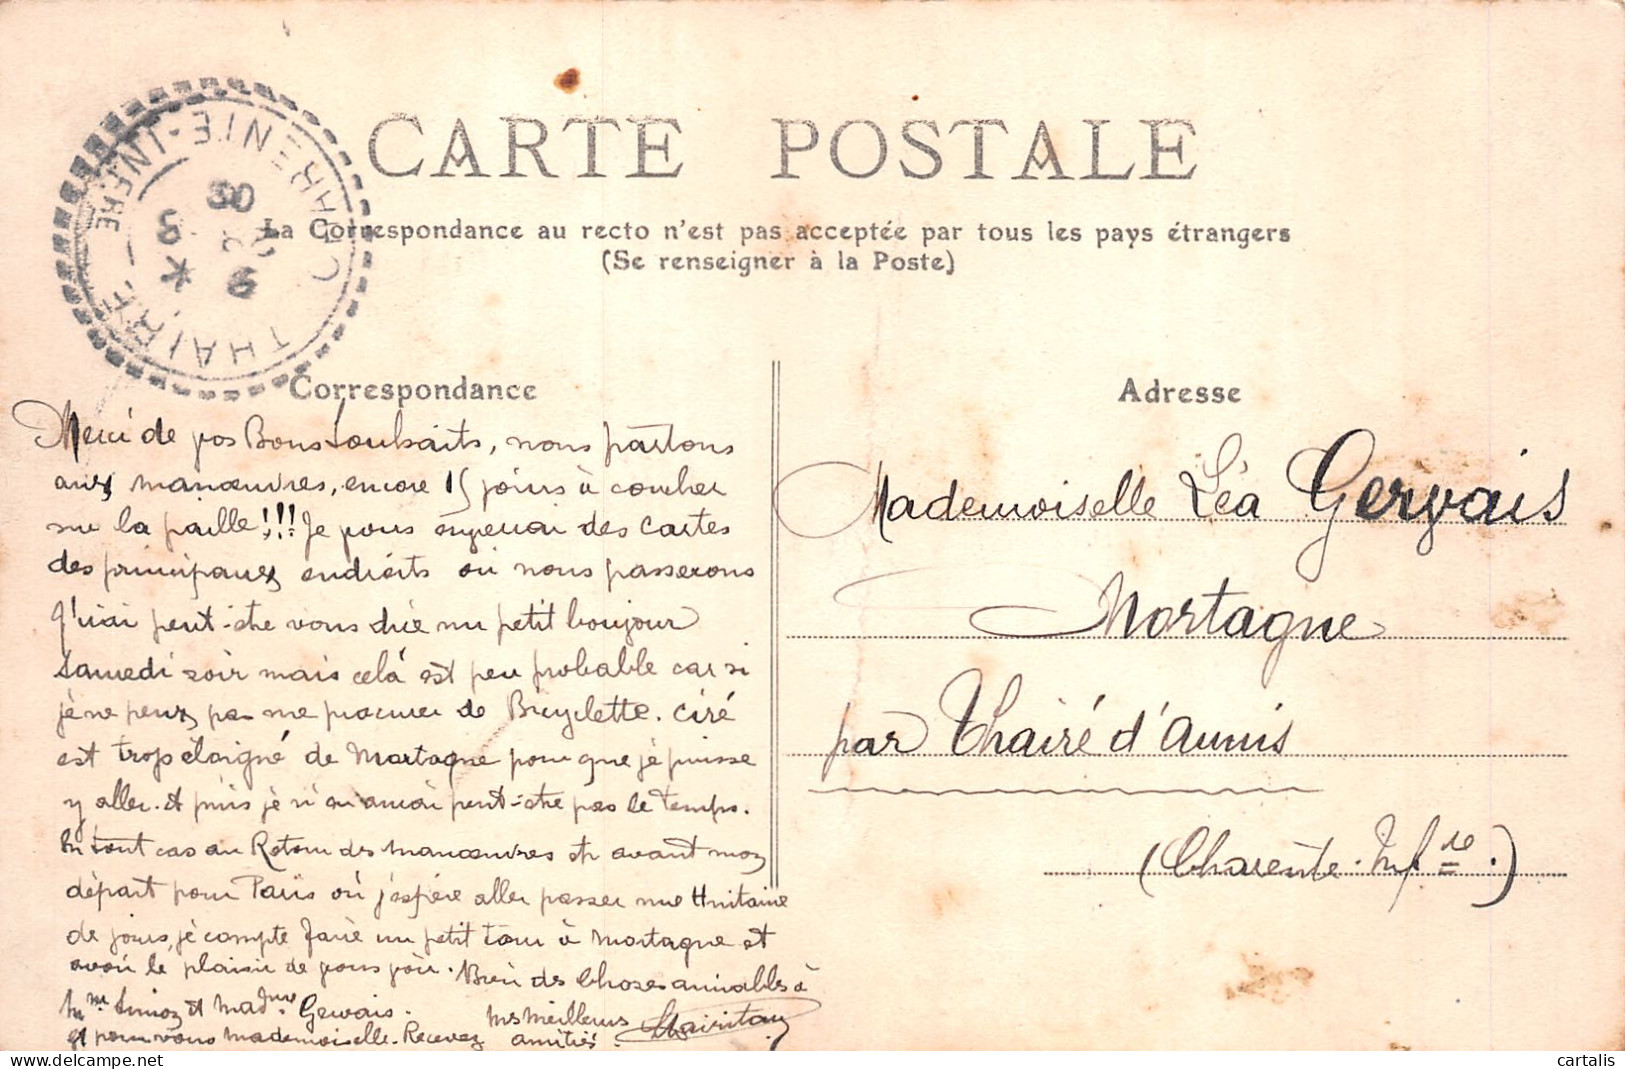 CARTE POSTALE
La Correspondance au recto n'est pas acceptée par tous les pays étrangers
(Se renseigner à la Poste)
CHARENTE-INFRE
THAIRÉ
Correspondance
Merci de vos Bons Souhaits, nous partons
aux manœuvres, encore 15 jours à coucher
sur la paille!!! Je vous enverrai des cartes
des principaux endroits où nous passerons
J'irai peut-être vous dire un petit bonjour
Samedi soir mais celà est peu probable car si
jè ne peux pas me procurer de Bicyclette. Ciré
est trop éloigné de Mortagne pour que jè puisse
y aller. et puis jè n'en aurai peut-être pas le temps.
En tout cas au Retour des manœuvres et avant mon
départ pour Paris où j'espére aller passer une Huitaine
de jours, jè compte faire un petit tour à Mortagne et
avoir le plaisir de vous voir. Bien des Choses aimables à
Mme et Madme Gervais.
et pour vous mademoiselle. Recevez
mes meilleures
amitiés.
Adresse
Mademoiselle Léa Gervais
Mortagne
par Thairé d'Aunis
(Charente-Infre.)
cartalis